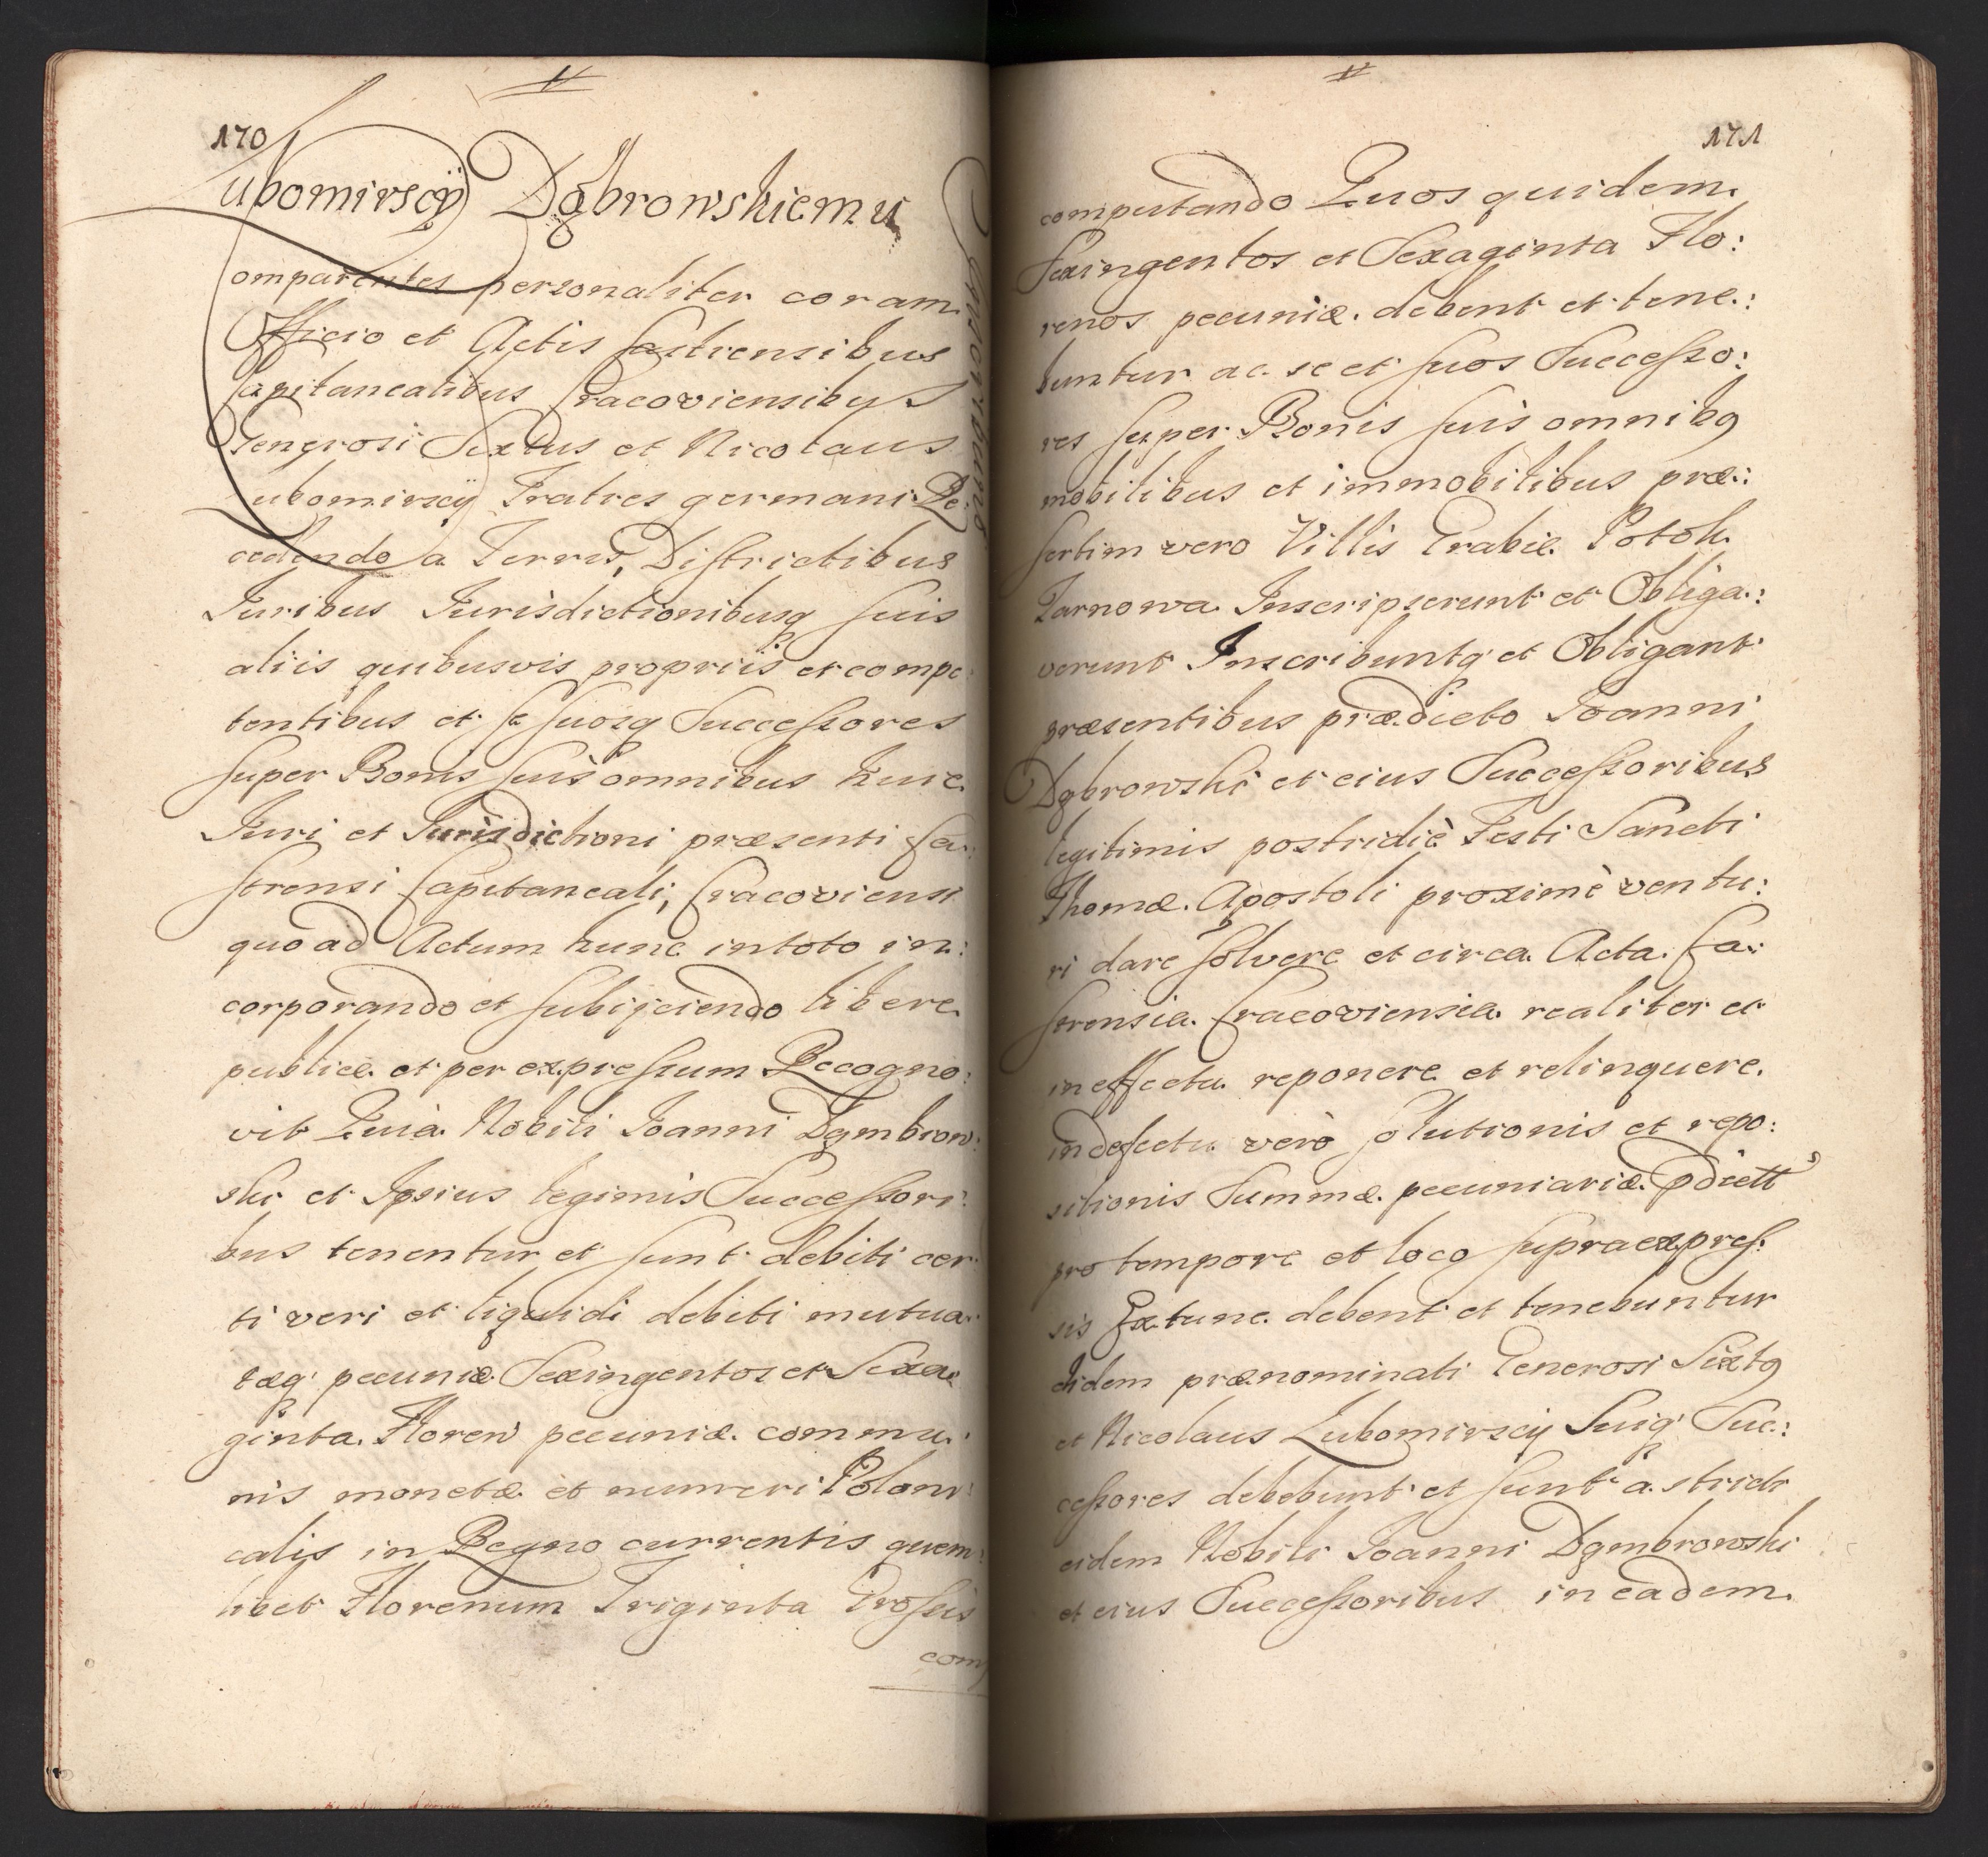 170
Lubomirscÿ Dąbrowskiemu
Comparentes personaliter coram
Officio et Actis Castrensibus
Capitanealibus Cracoviensibus
Generosi Sixtus et Nicolaus
Lubomirscÿ Fratres germani Re:
cedendo a Terris, Districtibus
Iuribus Iurisdictionibusq suis
aliis quibusvis propriis et compe:
tentibus et se suosq Successores
super Bonis suis omnibus huic
Iuri et Iurisdictioni præsenti Ca:
strensi Capitaneali, Cracoviensi
quo ad Actum hunc in toto in:
corporando et subijciendo libere
publice et per expressum Recogno:
vit Quia Nobili Ioanni Dąmbrow:
ski et Ipsius legimis Successori:
bus tenentur et sunt debiti cer:
ti veri et liquidi debiti mutua:
tæq pecuniæ Sexingentos et Sexa:
ginta Floren pecuniæ commu:
nis monetæ et numeri Poloni:
calis in Regno currentis quem:
libet Florenum Triginta Grossis
comp
171
computando Quos quidem
Sexingentos et Sexaginta Flo:
renos pecuniæ debent et tene:
buntur ac se et suos Successo:
res super Bonis suis omnibq
mobilibus et immobilibus præ:
sertim vero Villis Grabie Potok
Tarnowa Inscripserunt et Obliga:
verunt Inscribuntq et Obligant
præsentibus prædicto Ioanni
Dąbrowski et eius Successoribus
legitimis postridiè Festi Sancti
Thomæ Apostoli proximè ventu:
ri dare solvere et circa Acta Ca:
strensia Cracoviensia realiter et
in effectu reponere et relinquere.
in defectu verò solutionis et repo:
sitionis Summæ pecuniariæ pdictt
pro tempore et loco supra expres:
sis Extunc debent et tenebuntur
iidem prænominati Generosi Sixtq
et Nicolaus Lubomirscij Suiq Suc:
cessores debebunt et sunt astricti
eidem Nobili Ioanni Dąmbrowski
et eius Successoribus in eadem